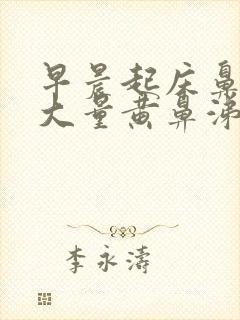 早晨起床鼻
大量黄鼻涕
李永涛